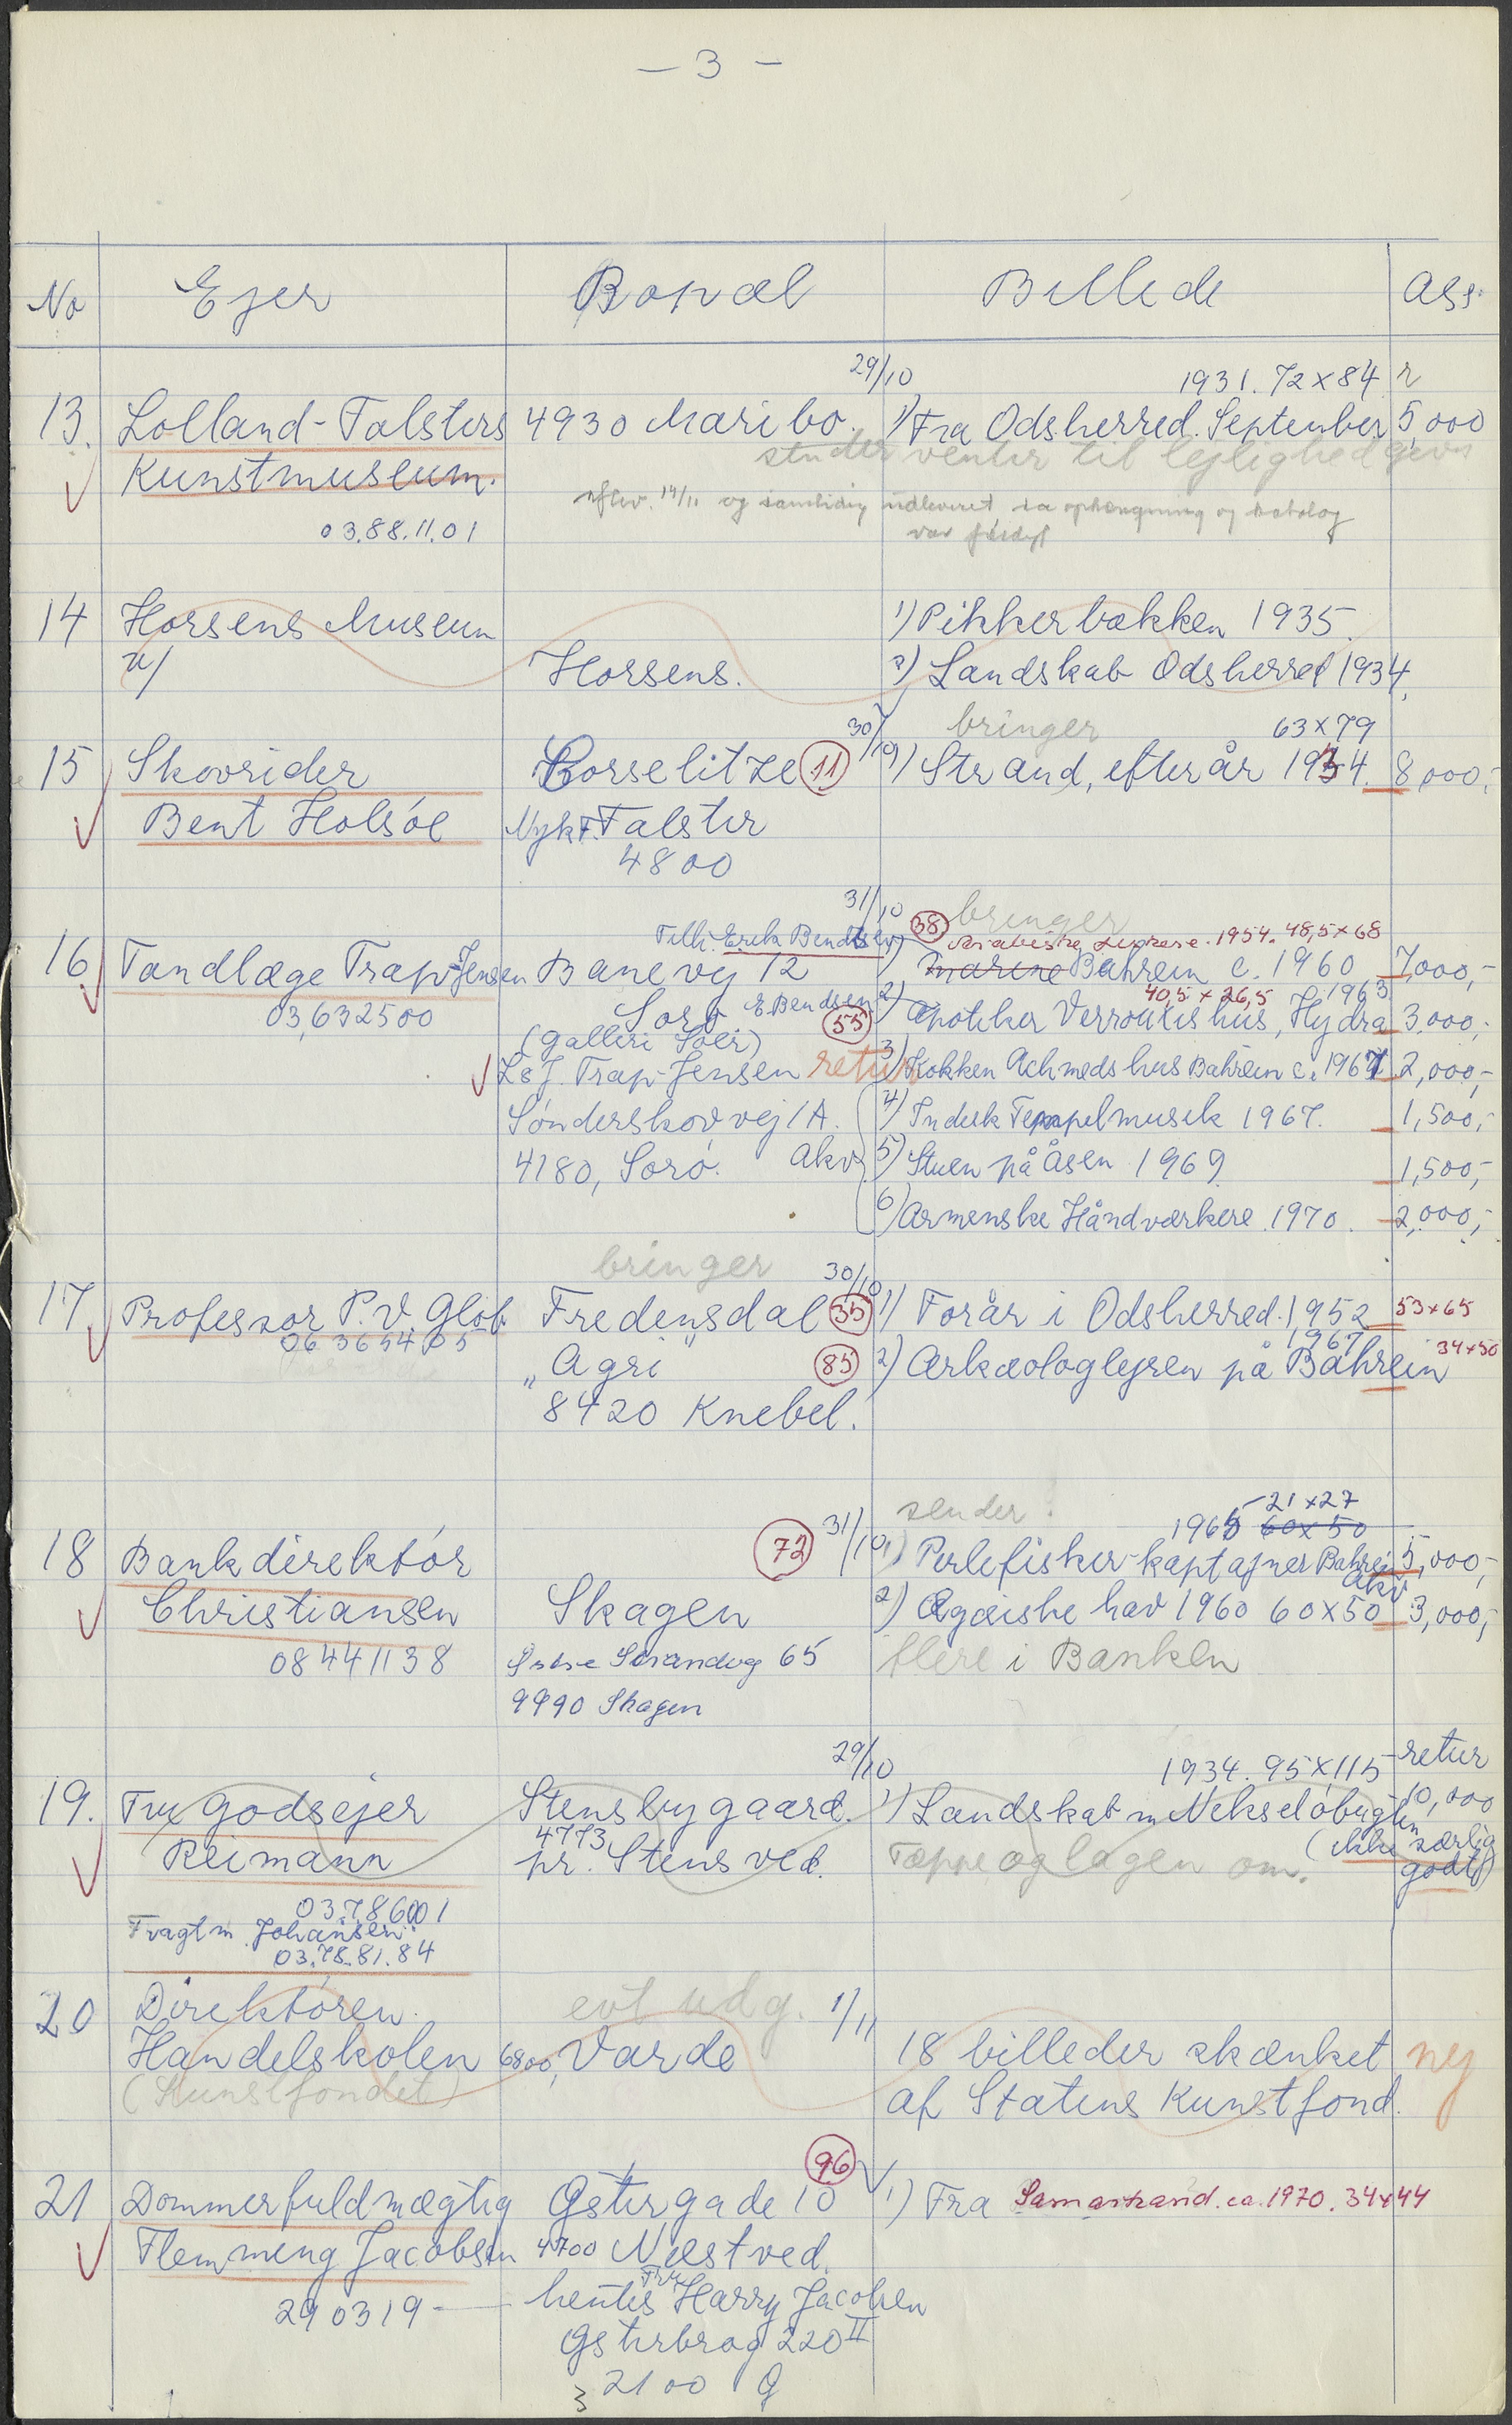 - 3 -
No Ejer Bopæl Billede Ass.
29/10 1931. 72 x 84 r
13. Lolland-Falsters 4930 Maribo. 1) Fra Odsherred. September 5,000
Kunstmuseum. venter til lejlighed gives
03.88.11.01 14/11 og samtidig udleveret, da ophængning og katalog
var færdigt
14 Horsens Museum 1) Pikkerbakken 1935.
Horsens. 2) Landskab Odsherred 1934.
30/10 bringer 63 x 79
15 Skovrider Corselitze 11 1) Strand, efterår 1934. 8,000,-
Bent Holsøe Nyk. F. Falster
4800
31/10 bringer
Erik Bendtsen 38 1954. 48,5 x 68
16 Tandlæge Trap-Jensen Banevej 12 1) Marine Bahrein c. 1960 7,000,-
40,5 x 26,5 1963
03,632500 Sorø E. Bendsen 55 2) Apoteker Verroukis hus, Hydra 3.000,-
(Galleri Soer)
L & J. Trap-Jensen retur 3) Kokken Achmeds hus Bahrein c. 1967 2,000,-
Sønderskovvej 1A. 4) Indisk Tempelmusik 1967. 1,500,-
4180, Sorø. Akv. 5) Stuen på Åsen 1969 1,500,-
6) Armenske Håndværkere 1970. 2,000,-
bringer 30/10
17 Professor P.V. Glob. Fredensdal 35 1) Forår i Odsherred. 1952 53 x 65
06 365405 1967 34 x 50
"Agri" 85 2) Arkæologlejren på Bahrein
8420 Knebel.
sender. 21 x 27
72 31/10 1965 60 x 50
18 Bankdirektør 1) Perlefisker-kaptajner Bahrein 5,000,-
akv
Christiansen Skagen 2) Ægæiske hav 1960 60 x 50 3,000,-
08 441138 Østre Strandvej 65 flere i Banken
9990 Skagen
29/10 1934. 95 x 115 retur
19. Fru Godsejer Stensbygaard. 1) Landskab m Nekseløbugten 10,000
4773 (ikke særlig
Reimann pr. Stensved. Tæppe og lagen om. godt)
03.786001
Fragtm. Johansen
03.78.81.84
20 Direktøren. evt udg. 1/11
Handelskolen 6800, Varde 18 billeder skænket nej
(Kunstfondet) af Statens Kunstfond.
96
21 Dommerfuldmægtig Østergade 10 1) Fra Samsstrand. ca. 1970. 34 x 44
Flemming Jacobsen 4700 Næstved.
Fru
290319 hentes Harry Jacobsen
Østerbrog 220 II
2100 Ø